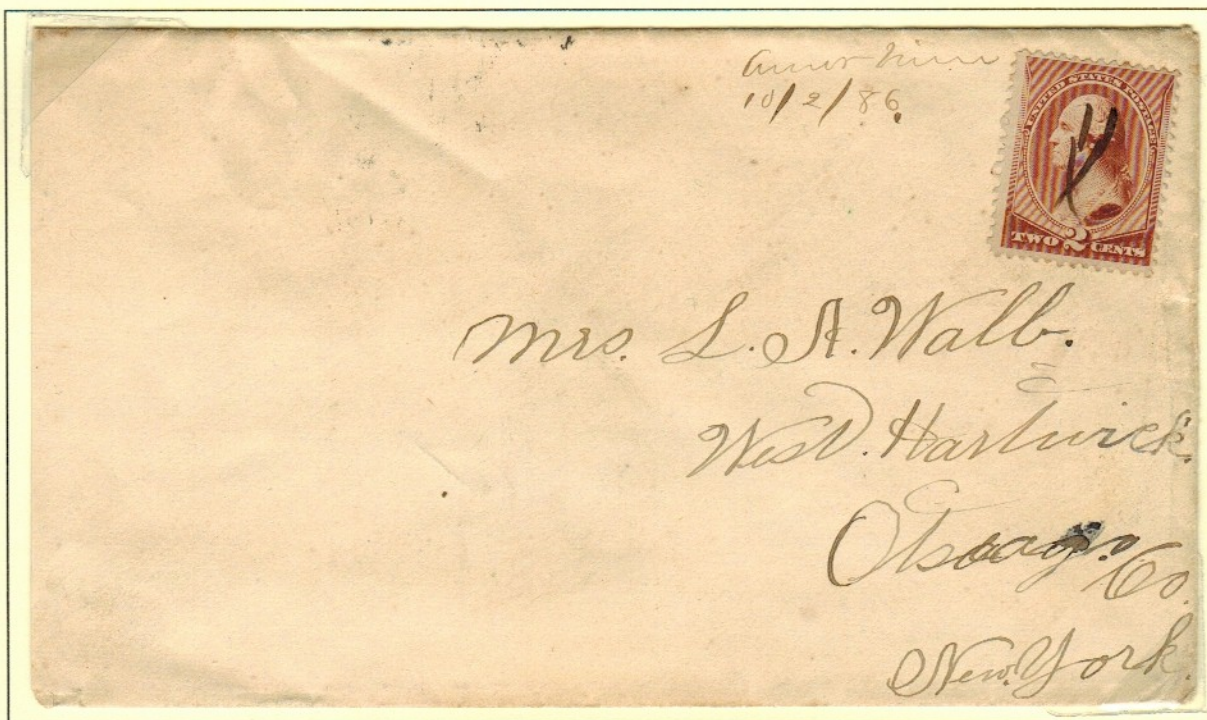 10/2/86
UNITED STATES POSTAGE
TWO 2 CENTS
Mrs. L. A. Walb.
West. Hartwick.
Otsego Co.
New. York.